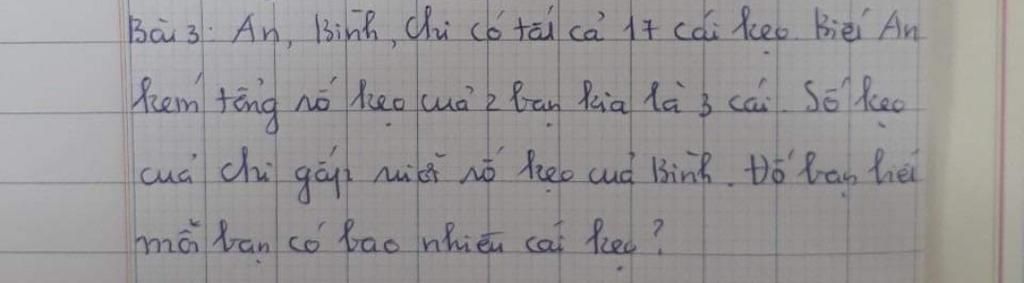 Bài 3: An, Bình, Chi có tất cả 17 cái kẹo. Biết An
kém tổng số kẹo của 2 bạn kia là 3 cái. Số kẹo
của Chi gấp rưỡi số kẹo của Bình. Đố bạn biết
mỗi bạn có bao nhiêu cái kẹo?